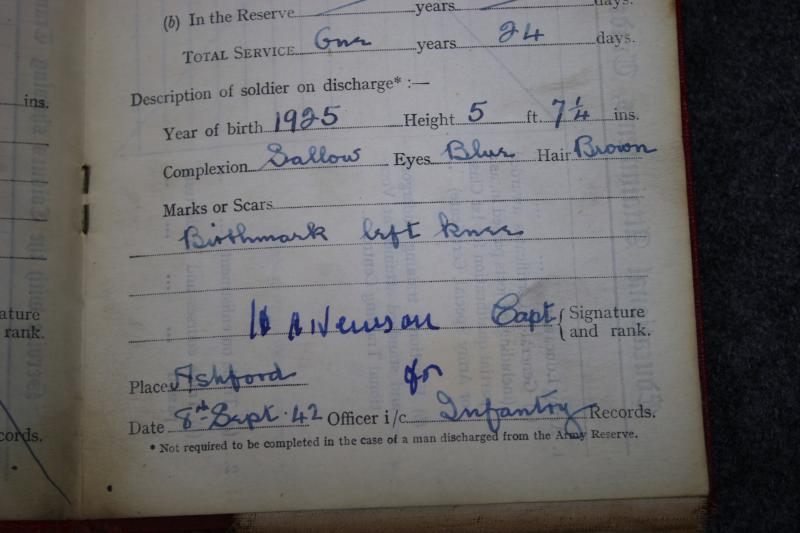 (b) In the Reserve years days.
TOTAL SERVICE One years 24 days.
ins.
Description of soldier on discharge* :—
Year of birth 1925 Height 5 ft. 7¼ ins.
Complexion Sallow Eyes Blue Hair Brown
Marks or Scars
Birthmark left knee
Capt Signature
ature
and rank.
rank.
Place Ashford for
Date 8th Sept. 42 Officer i/c Infantry Records.
cords.
* Not required to be completed in the case of a man discharged from the Army Reserve.